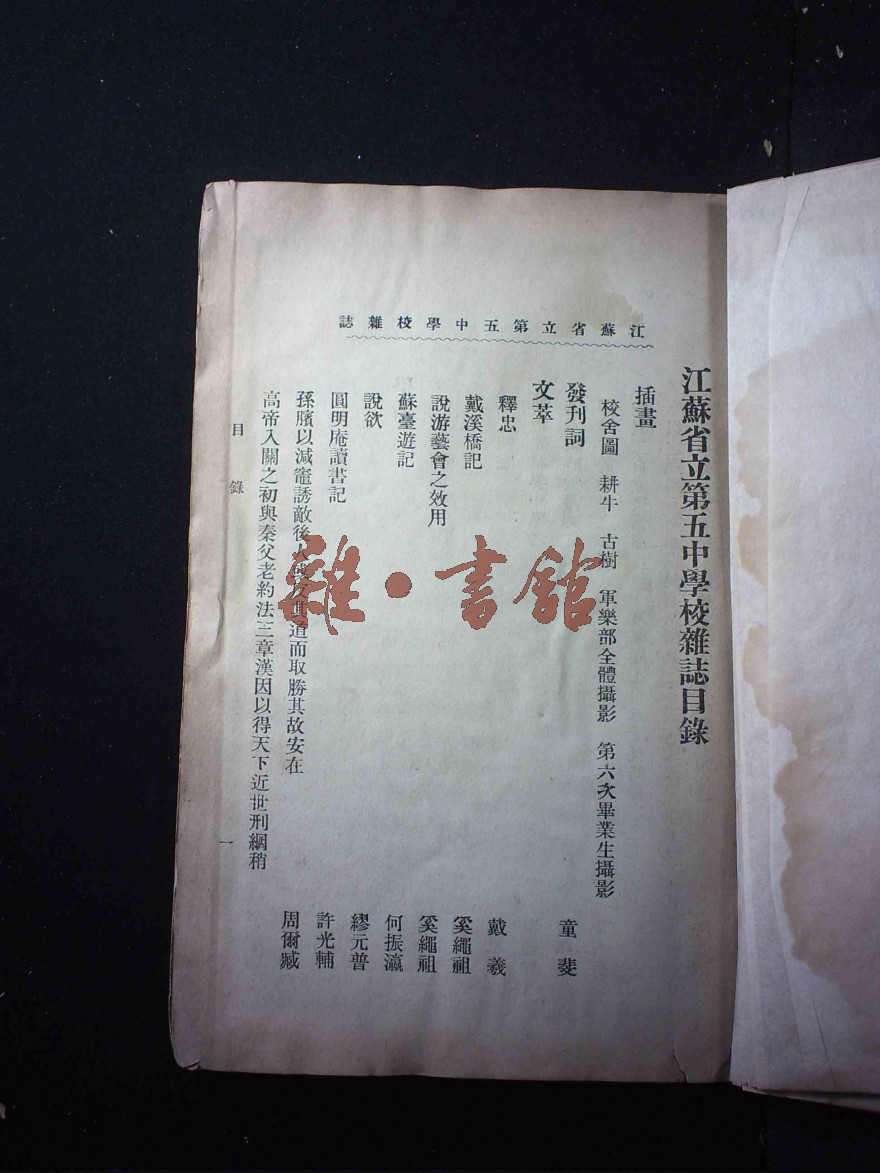 江蘇省立第五中學校雜誌目錄
江蘇省立第五中學校雜誌
插畫
校舍圖　耕牛　古樹　軍樂部全體攝影　第六次畢業生攝影
發刊詞　童斐
文萃
釋忠　戴羲
戴溪橋記　奚繩祖
說游藝會之效用　奚繩祖
蘇臺遊記　何振瀛
說欲　繆元普
圓明庵讀書記　許光輔
孫臏以減竈誘敵後人或反其道而取勝其故安在　周爾臧
高帝入關之初與秦父老約法三章漢因以得天下近世刑綱稍
目錄
一
雜·書館